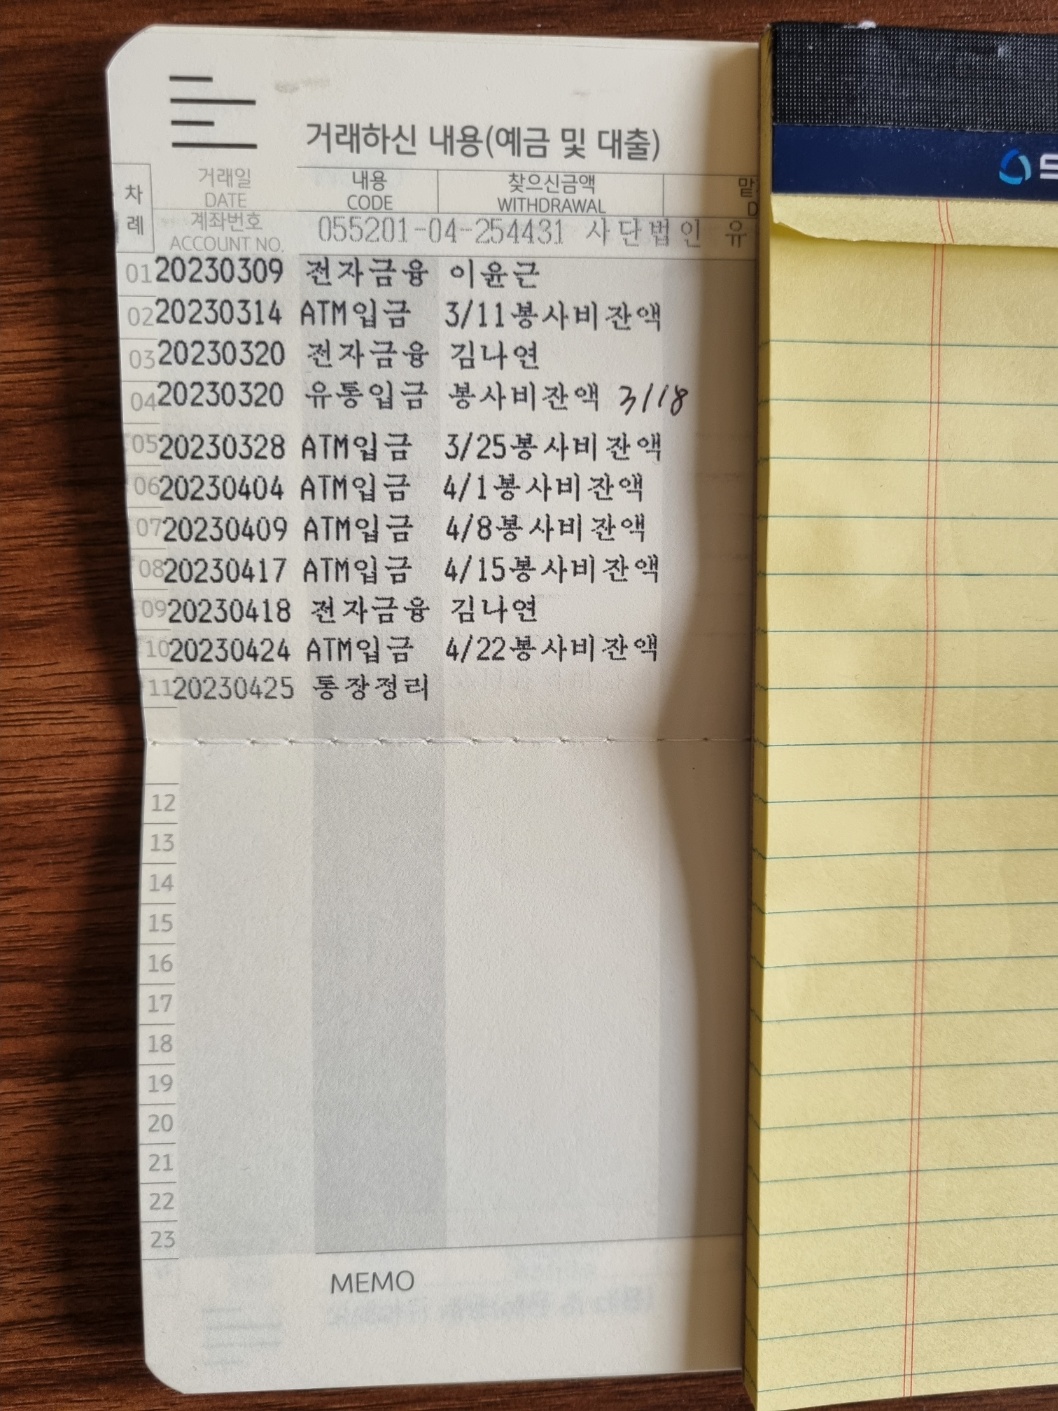 거래하신 내용(예금 및 대출)
차례 거래일 DATE 내용 CODE 찾으신금액 WITHDRAWAL
계좌번호 ACCOUNT NO. 055201-04-254431 사단법인 유
01 20230309 전자금융 이윤근
02 20230314 ATM입금 3/11봉사비잔액
03 20230320 전자금융 김나연
04 20230320 유통입금 봉사비잔액 3/18
05 20230328 ATM입금 3/25봉사비잔액
06 20230404 ATM입금 4/1봉사비잔액
07 20230409 ATM입금 4/8봉사비잔액
08 20230417 ATM입금 4/15봉사비잔액
09 20230418 전자금융 김나연
10 20230424 ATM입금 4/22봉사비잔액
11 20230425 통장정리
12
13
14
15
16
17
18
19
20
21
22
23
MEMO